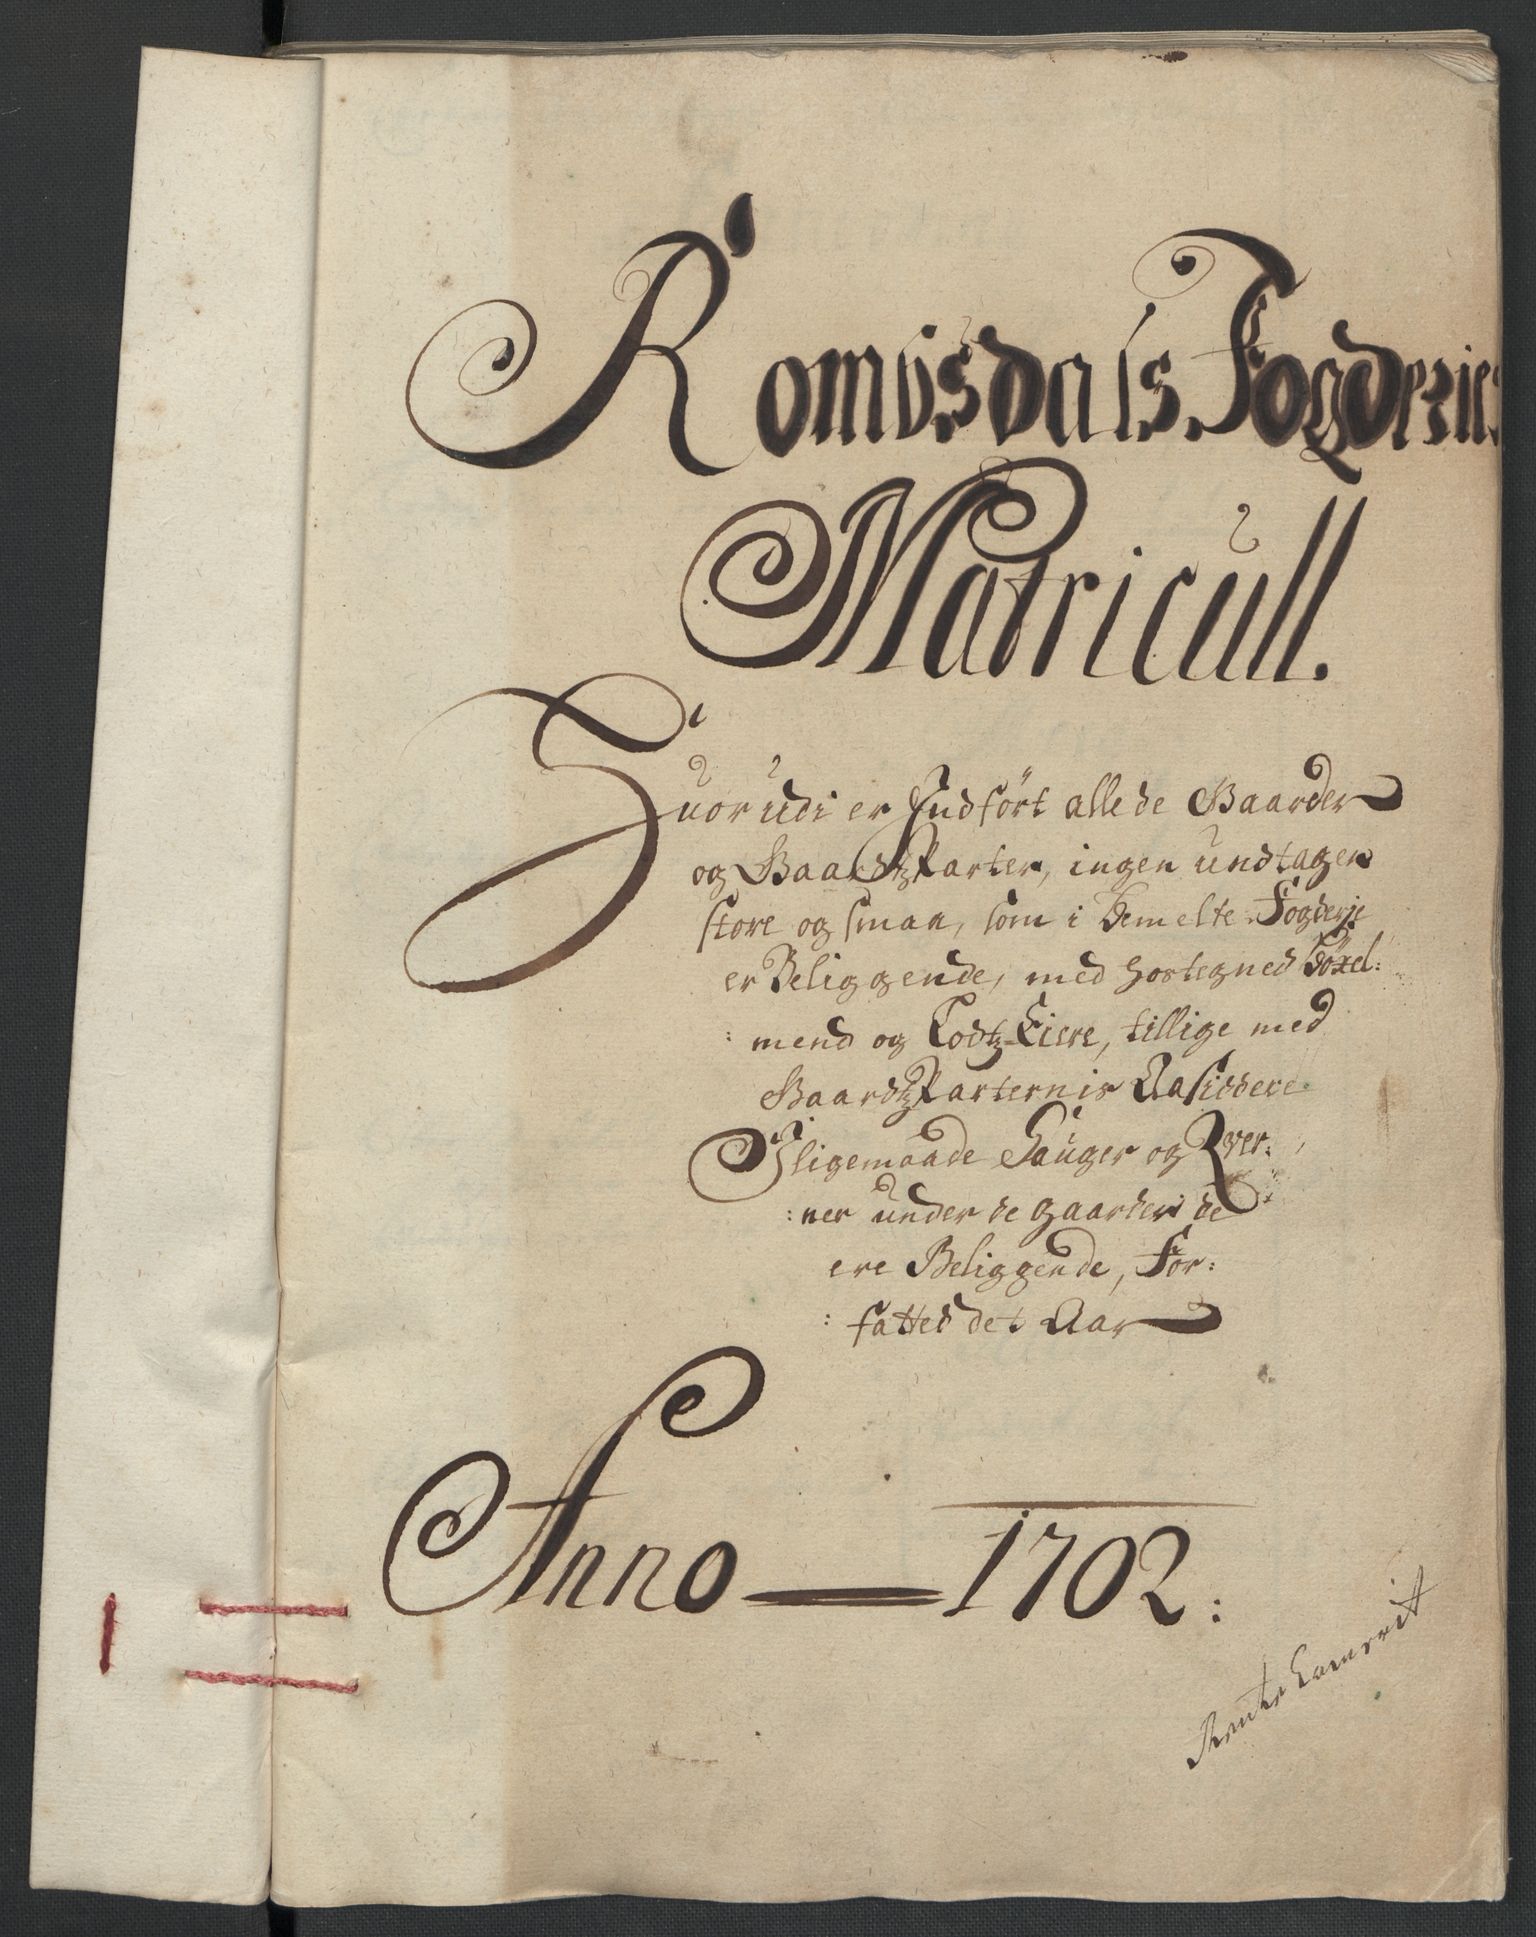 Romsdals Fogderies
Matricull.
Huorudi er Indført alle de Gaarder
og Gaardtz Parter, ingen undtagen
store og smaa, som i bemelte Fogderie
er Beliggende, med hostegned böxel:
:mend og Lodtz-Eiere, tillige med
Gaardtz Parternis Aasiddere
Iligemaade Sauger og Qver:
:ner under de gaarder de
ere Beliggende, For:
:fatted det Aar
Anno — 1702:
Rente Camerrit